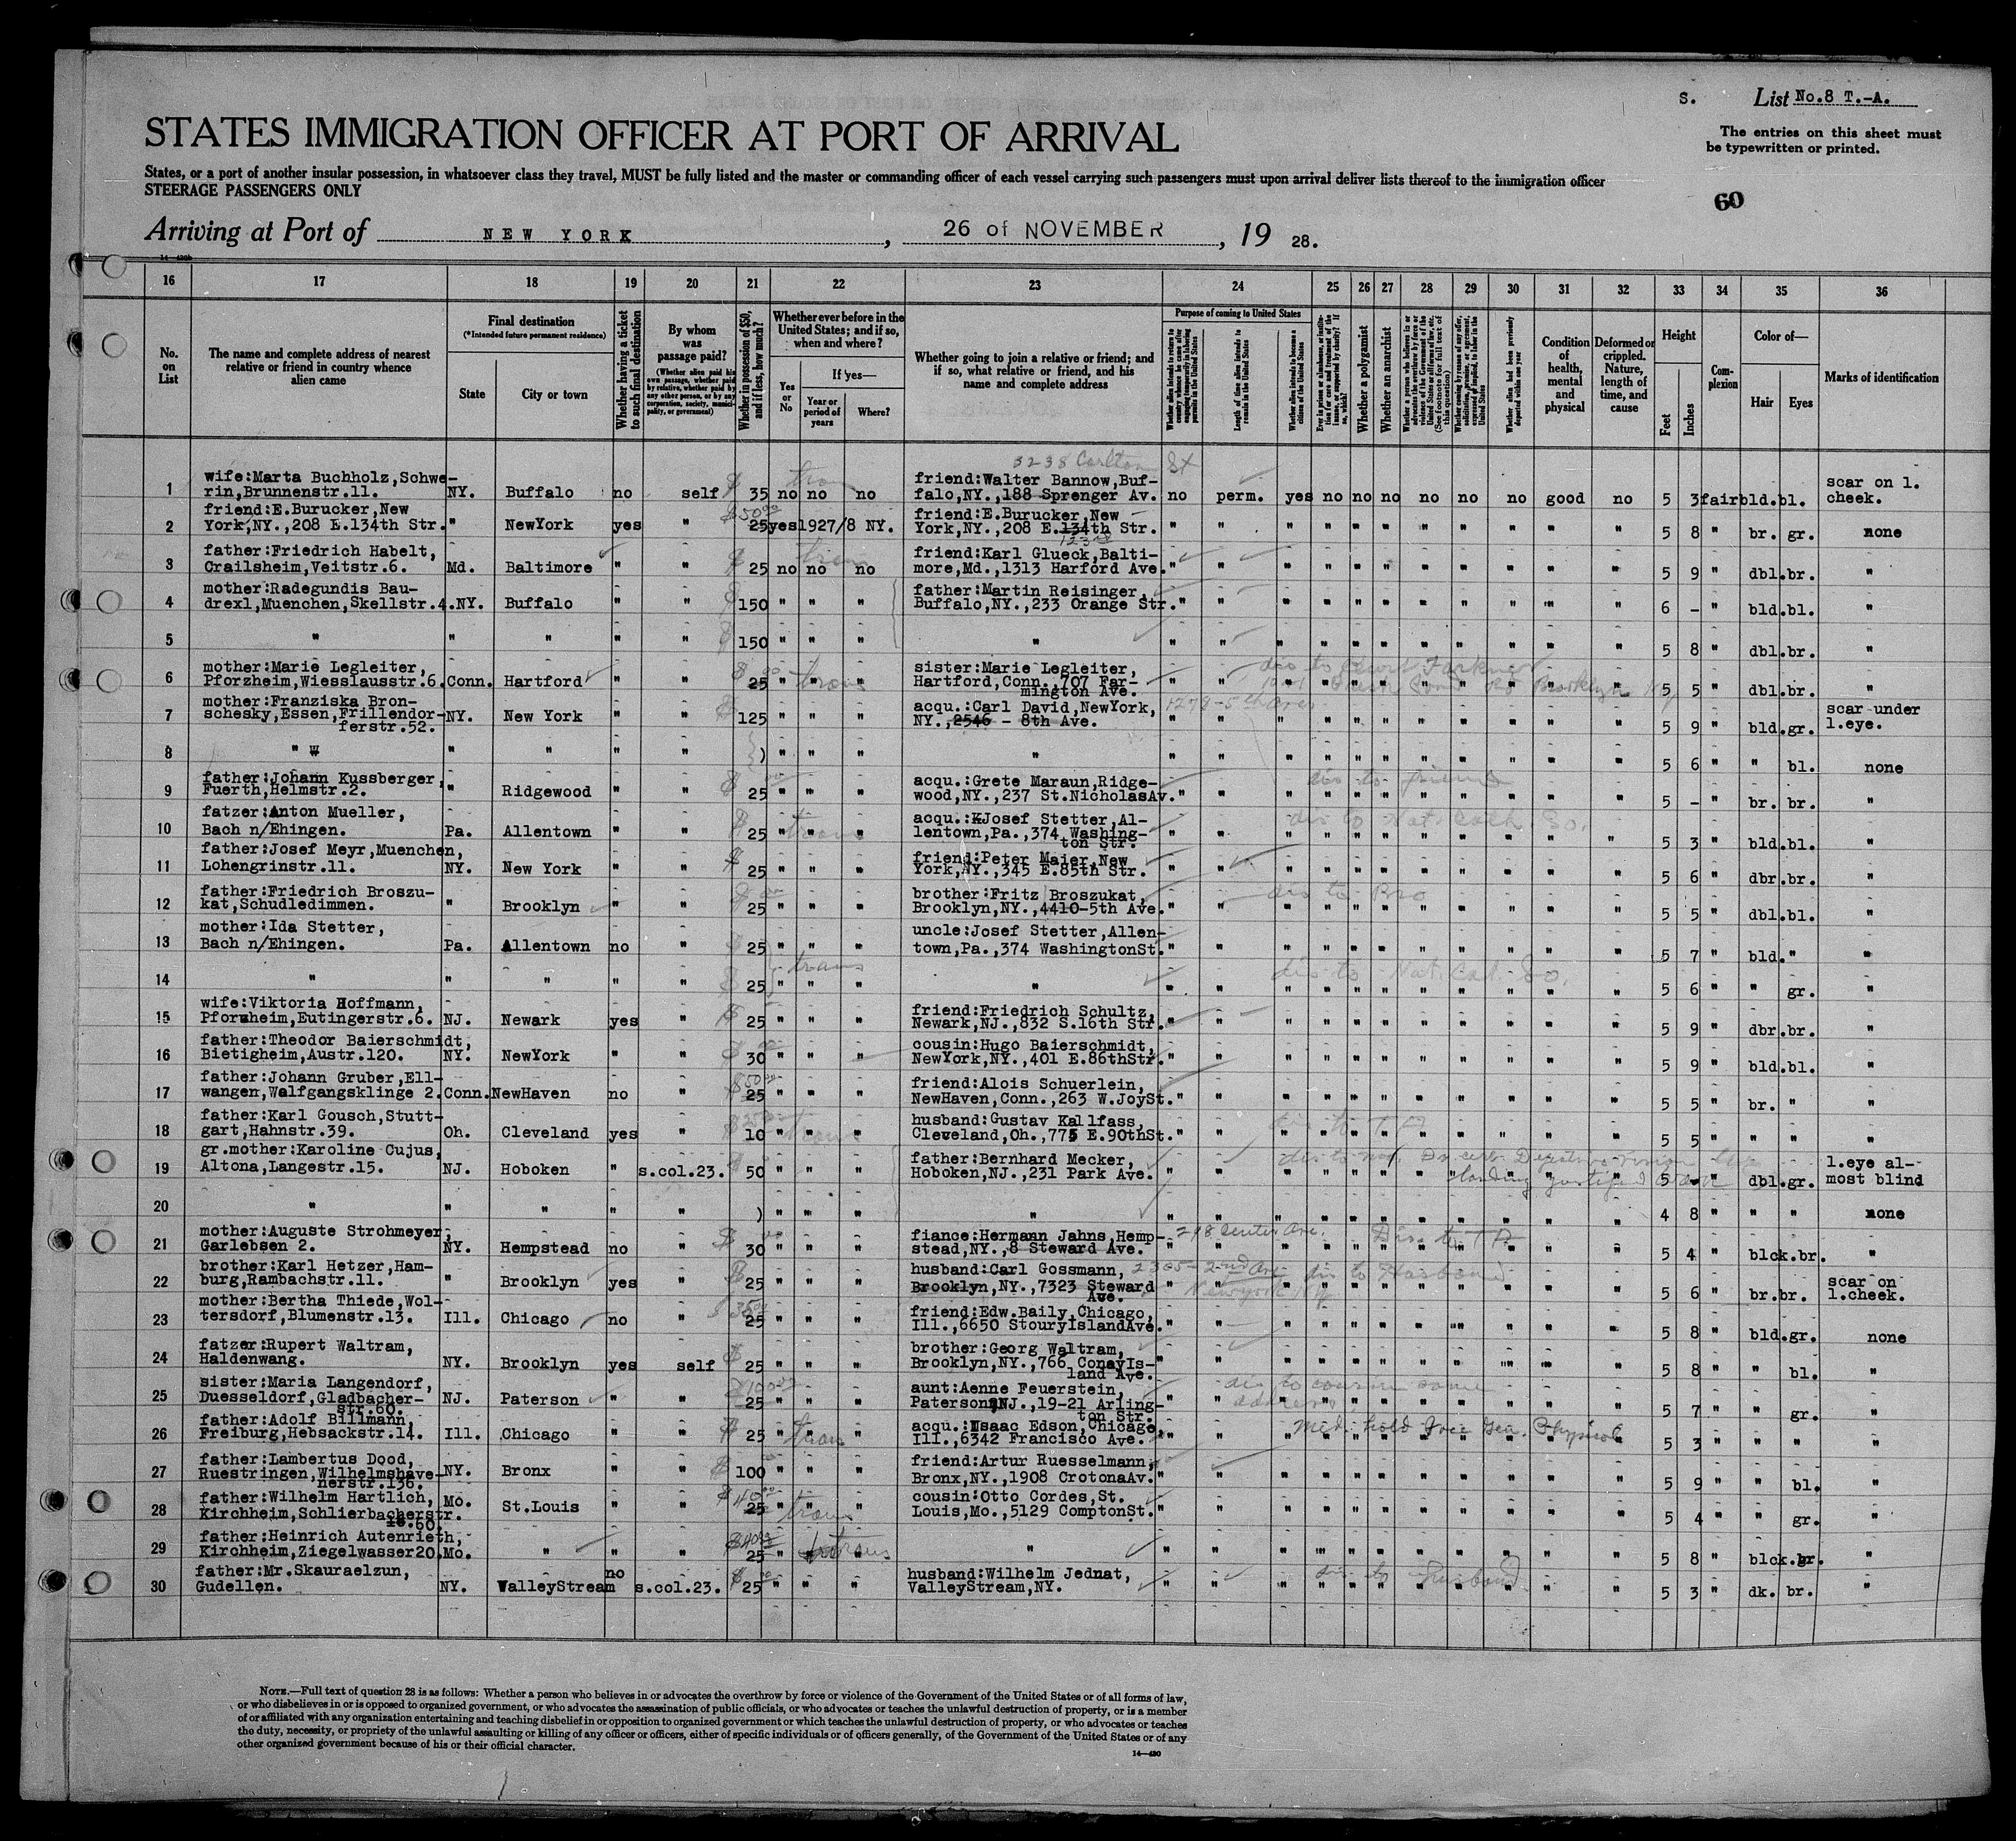 S. List No.8 T.-A.
STATES IMMIGRATION OFFICER AT PORT OF ARRIVAL
The entries on this sheet must
be typewritten or printed.
States, or a port of another insular possession, in whatsoever class they travel, MUST be fully listed and the master or commanding officer of each vessel carrying such passengers must upon arrival deliver lists thereof to the immigration officer
STEERAGE PASSENGERS ONLY
60
Arriving at Port of NEW YORK, 26 of NOVEMBER, 19 28.
16 17 18 19 20 21 22 23 24 25 26 27 28 29 30 31 32 33 34 35 36
No. on List
The name and complete address of nearest relative or friend in country whence alien came
Final destination
(*Intended future permanent residence)
State
City or town
Whether having a ticket to such final destination
By whom was passage paid?
(Whether alien paid his own passage, whether paid by relative, whether paid by any other person, or by any corporation, society, municipality, or government)
Whether in possession of $50, and if less, how much?
Whether ever before in the United States; and if so, when and where?
Yes or No
If yes—
Year or period of years
Where?
Whether going to join a relative or friend; and if so, what relative or friend, and his name and complete address
Purpose of coming to United States
Length of time alien intends to remain in the United States
Whether alien intends to become a citizen of the United States
Whether a polygamist
Whether an anarchist
Condition of health, mental and physical
Deformed or crippled. Nature, length of time, and cause
Height
Feet
Inches
Complexion
Color of—
Hair
Eyes
Marks of identification
3238 Carlton St
1 wife:Marta Buchholz,Schwe- friend:Walter Bannow,Buf- scar on l.
rin,Brunnenstr.11. NY. Buffalo no self 35 no no no falo,NY.,188 Sprenger Av. no perm. yes no no no no no no good no 5 3 fair bld. bl. cheek.
2 friend:E.Burucker,New friend:E.Burucker,New
York,NY.,208 E.134th Str. " NewYork yes " 25 yes 1927/8 NY. York,NY.,208 E.134th Str. " " " " " " " " " " " 5 8 " br. gr. none
3 father:Friedrich Habelt, friend:Karl Glueck,Balti-
Crailsheim,Veitstr.6. Md. Baltimore " " 25 no no no more,Md.,1313 Harford Ave. " " " " " " " " " " " 5 9 " dbl. br. "
4 mother:Radegundis Bau- father:Martin Reisinger,
drexl,Muenchen,Skellstr.4. NY. Buffalo " " 150 " " " Buffalo,NY.,233 Orange Str. " " " " " " " " " " " 6 - " bld. bl. "
5 " " " " " 150 " " " " " " " " " " " " " " " " 5 8 " dbl. br. "
6 mother:Marie Legleiter, sister:Marie Legleiter,
Pforzheim,Wiesslausstr.6. Conn. Hartford " " 25 " " " Hartford,Conn.,707 Far-
mington Ave. " " " " " " " " " " " 5 5 " dbl. br. "
7 mother:Franziska Bron- acqu.:Carl David,NewYork, scar under
schesky,Essen,Frillendor- NY. New York " " 125 " " " NY.,2546 - 8th Ave. " " " " " " " " " " " 5 9 " bld. gr. l.eye.
ferstr.52.
8 " " " " " ) " " " " " " " " " " " " " " " " 5 6 " " bl. none
9 father:Johann Kussberger, acqu.:Grete Maraun,Ridge- dis to friend
Fuerth,Helmstr.2. " Ridgewood " " 25 " " " wood,NY.,237 St.NicholasAv. " " " " " " " " " " " 5 - " br. br. "
10 fatzer:Anton Mueller, acqu.:KJosef Stetter,Al-
Bach n/Ehingen. Pa. Allentown " " 25 " " " lentown,Pa.,374 Washing-
ton Str. " " " " " " " " " " " 5 3 " bld. bl. "
11 father:Josef Meyr,Muenchen, friend:Peter Maier,New
Lohengrinstr.11. NY. New York " " 25 " " " York,NY.,345 E.85th Str. " " " " " " " " " " " 5 6 " dbr. br. "
12 father:Friedrich Broszu- brother:Fritz Broszukat, dis to Bro
kat,Schudledimmen. " Brooklyn " " 25 " " " Brooklyn,NY.,4410-5th Ave. " " " " " " " " " " " 5 5 " dbl. bl. "
13 mother:Ida Stetter, uncle:Josef Stetter,Allen-
Bach n/Ehingen. Pa. Allentown no " 25 " " " town,Pa.,374 WashingtonSt. " " " " " " " " " " " 5 7 " bld. " "
14 " " " " " 25 trans " " " " " " " " " " " " " " " " 5 6 " " gr. "
15 wife:Viktoria Hoffmann, friend:Friedrich Schultz,
Pforzheim,Eutingerstr.6. NJ. Newark yes " 25 " " " Newark,NJ.,832 S.16th Str. " " " " " " " " " " " 5 9 " dbr. br. "
16 father:Theodor Baierschmidt, cousin:Hugo Baierschmidt,
Bietigheim,Austr.120. NY. NewYork " " 30 " " " NewYork,NY.,401 E.86thStr. " " " " " " " " " " " 5 9 " bld. bl. "
17 father:Johann Gruber,Ell- friend:Alois Schuerlein,
wangen,Wolfgangsklinge 2. Conn. NewHaven no " 25 " " " NewHaven,Conn.,263 W.JoySt. " " " " " " " " " " " 5 5 " br. " "
18 father:Karl Gousch,Stutt- husband:Gustav Kallfass,
gart,Hahnstr.39. Oh. Cleveland yes " 10 " " " Cleveland,Oh.,775 E.90thSt. " " " " " " " " " " " 5 5 " " " "
19 gr.mother:Karoline Cujus, father:Bernhard Mecker, l.eye al-
Altona,Langestr.15. NJ. Hoboken " s.col.23. 50 " " " Hoboken,NJ.,231 Park Ave. " " " " " " " " " " " 5 - " dbl. gr. most blind
20 " " " " " ) " " " " " " " " " " " " " " " " 4 8 " " " none
21 mother:Auguste Strohmeyer, fiance:Hermann Jahns,Hemp-
Garlebsen 2. NY. Hempstead no " 30 " " " stead,NY.,8 Steward Ave. " " " " " " " " " " " 5 4 " blck. br. "
22 brother:Karl Hetzer,Ham- husband:Carl Gossmann, 2305-2nd Ave dis to Husband
burg,Rambachstr.11. " Brooklyn yes " 25 " " " Brooklyn,NY.,7323 Steward scar on
Ave. Newyork NY " " " " " " " " " " " 5 6 " br. br. l.cheek.
23 mother:Bertha Thiede,Wol- friend:Edw.Baily,Chicago,
tersdorf,Blumenstr.13. Ill. Chicago no " 25 " " " Ill.,6650 StouryIslandAve. " " " " " " " " " " " 5 8 " bld. gr. none
24 fatzer:Rupert Waltram, brother:Georg Waltram,
Haldenwang. NY. Brooklyn yes self 25 " " " Brooklyn,NY.,766 ConayIs-
land Ave. " " " " " " " " " " " 5 8 " " bl. "
25 sister:Maria Langendorf, aunt:Aenne Feuerstein, dis to cousin same address
Duesseldorf,Gladbacher- NJ. Paterson " " 25 " " " Paterson,NJ.,19-21 Arling-
str.60. ton Str. " " " " " " " " " " " 5 7 " " gr. "
26 father:Adolf Billmann, acqu.:Isaac Edson,Chicago,
Freiburg,Hebsackstr.14. Ill. Chicago " " 25 trans " " " Ill.,6342 Francisco Ave. " " " " " " " " " " " 5 3 " " " "
27 father:Lambertus Dood, friend:Artur Ruesselmann,
Ruestringen,Wilhelmshave- NY. Bronx " " 100 " " " Bronx,NY.,1908 CrotonaAv. " " " " " " " " " " " 5 9 " " bl. "
nerstr.136.
28 father:Wilhelm Hartlich, Mo. cousin:Otto Cordes,St.
Kirchheim,Schlierbacherstr. St.Louis " " 25 trans " " " Louis,Mo.,5129 ComptonSt. " " " " " " " " " " " 5 4 " " gr. "
60.
29 father:Heinrich Autenrieth,
Kirchheim,Ziegelwasser20. Mo. " " " 25 trans " " " " " " " " " " " " " " " 5 8 " blck. gr. "
30 father:Mr.Skauraelzun, no husband:Wilhelm Jednat, dis to husband
Gudellen. NY. ValleyStream s.col.23. 25 " " " ValleyStream,NY. " " " " " " " " " " " 5 3 " dk. br. "
NOTE.—Full text of question 28 is as follows: Whether a person who believes in or advocates the overthrow by force or violence of the Government of the United States or of all forms of law,
or who disbelieves in or is opposed to organized government, or who advocates the assassination of public officials, or who advocates or teaches the unlawful destruction of property, or is a member
of or affiliated with any organization entertaining and teaching disbelief in or opposition to organized government or which teaches the unlawful destruction of property, or who advocates or teaches
the duty, necessity, or propriety of the unlawful assaulting or killing of any officer or officers, either of specific individuals or of officers generally, of the Government of the United States or of any
other organized government because of his or their official character.
14—430